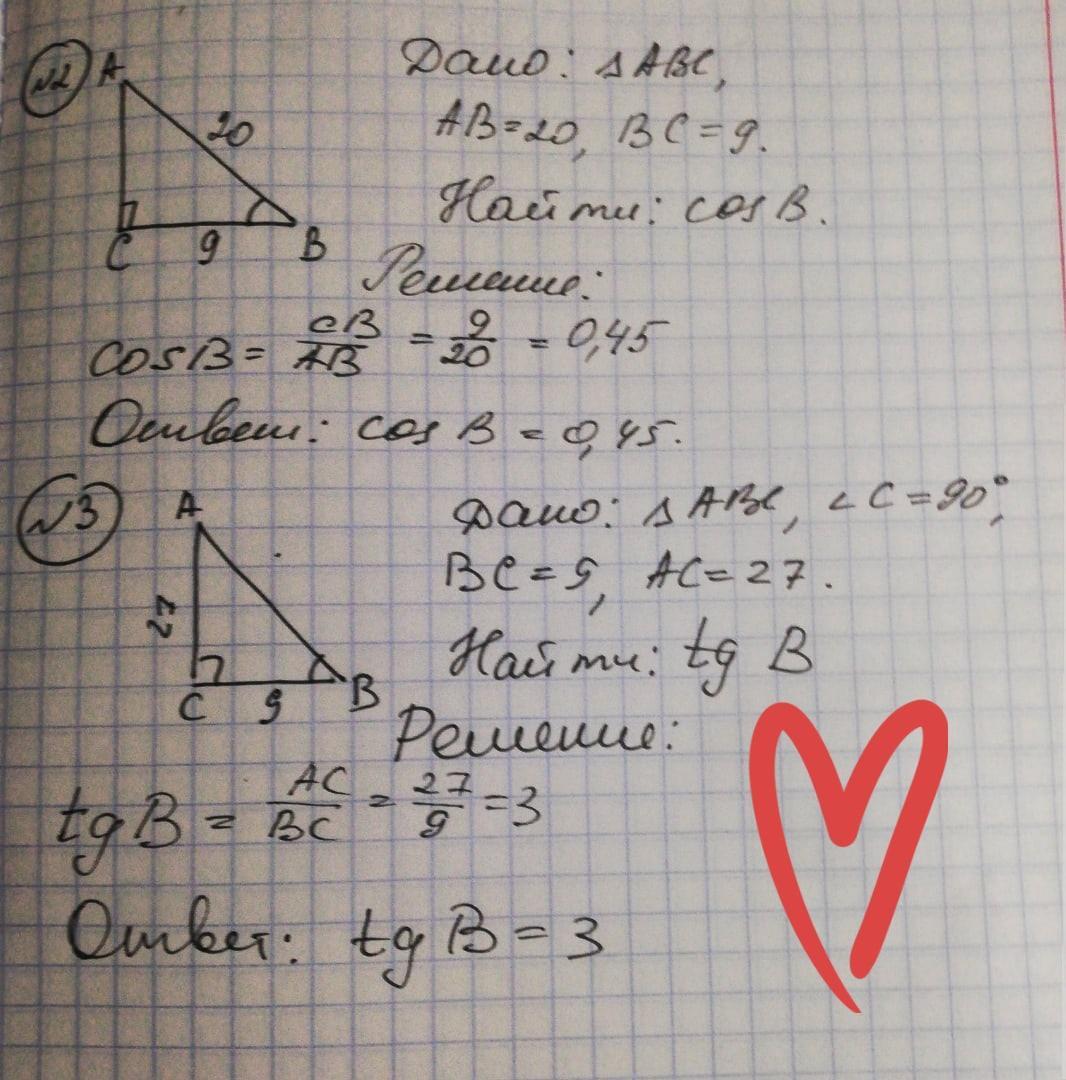 №2
A
20
C 9 B
Дано: △ABC,
AB=20, BC=9.
Найти: cosB.
Решение:
cosB = CB/AB = 9/20 = 0,45
Ответ: cos B = 0,45.
№3
A
27
C 9 B
Дано: △ABC, ∠C=90°,
BC=9, AC=27.
Найти: tg B
Решение:
tgB = AC/BC = 27/9 = 3
Ответ: tg B = 3